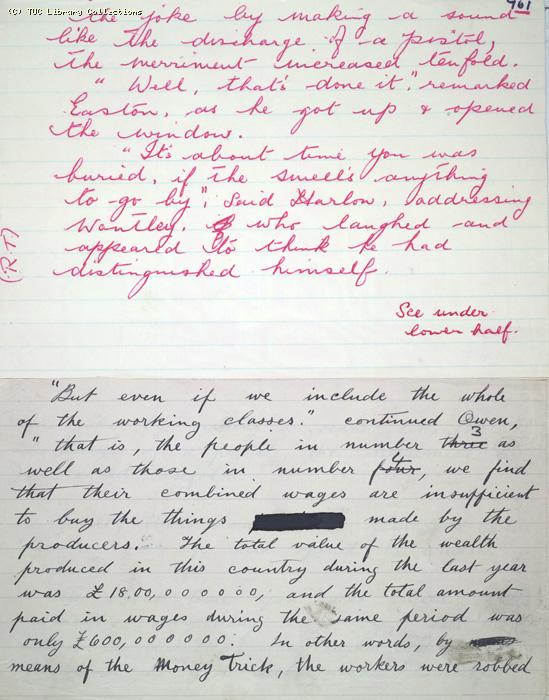 (C) TUC Library Collections
961
the joke by making a sound
like the discharge of a pistol,
the merriment increased tenfold.
"Well, that's done it", remarked
Easton, as he got up & opened
the window.
"It's about time you was
buried, if the smell's anything
to go by", said Harlow, addressing
Wantley, who laughed and
appeared to think he had
distinguished himself.
(R.T)
See under
lower half.
"But even if we include the whole
of the working classes." continued Owen,
"that is, the people in number three 3 as
well as those in number four 4, we find
that their combined wages are insufficient
to buy the things made by the
producers. The total value of the wealth
produced in this country during the last year
was £18.00,000000, and the total amount
paid in wages during the same period was
only £600,000000. In other words, by
means of the Money Trick, the workers were robbed